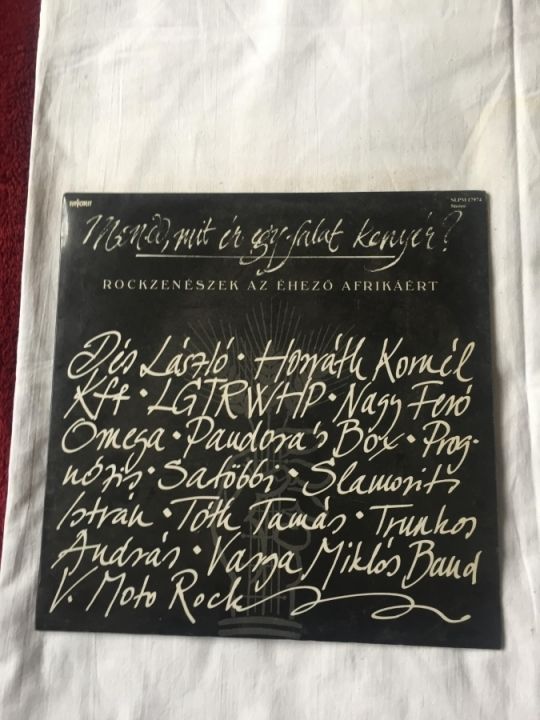 SLPM 17974
Stereo
Mondd, mit ér egy falat kenyér?
ROCKZENÉSZEK AZ ÉHEZŐ AFRIKÁÉRT
Dés László • Horváth Kornél
Kft • LGT RWHP • Nagy Feró
Omega • Pandora's Box • Prog-
nózis • Satöbbi • Slamovits
István • Tóth Tamás • Trunkos
András • Varga Miklós Band
V. Moto Rock